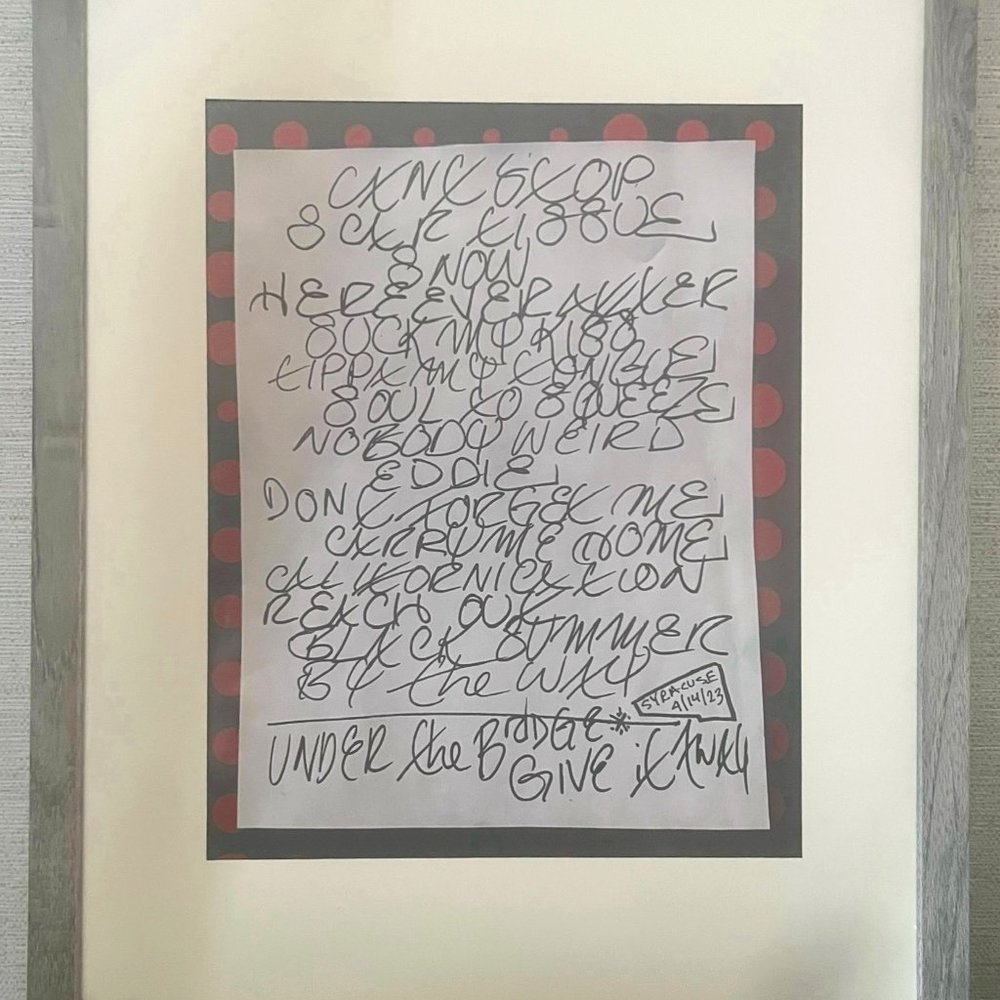 CAN'T STOP
SCAR TISSUE
SNOW
HERE EVER AFTER
SUCK MY KISS
TIPPA MY TONGUE
SOUL TO SQUEEZE
NOBODY WEIRD
EDDIE
DONT FORGET ME
CARRY ME HOME
CALIFORNICATION
REACH OUT
BLACK SUMMER
BY the WAY
SYRACUSE
4/14/23
UNDER the BRIDGE *
GIVE it AWAY